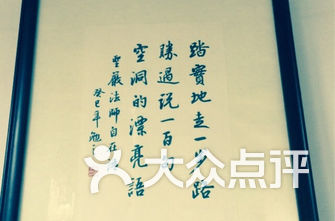 踏實地走一步路
勝過說一百句
空洞的漂亮語
聖嚴法師自在語
癸巳年勉之
大众点评